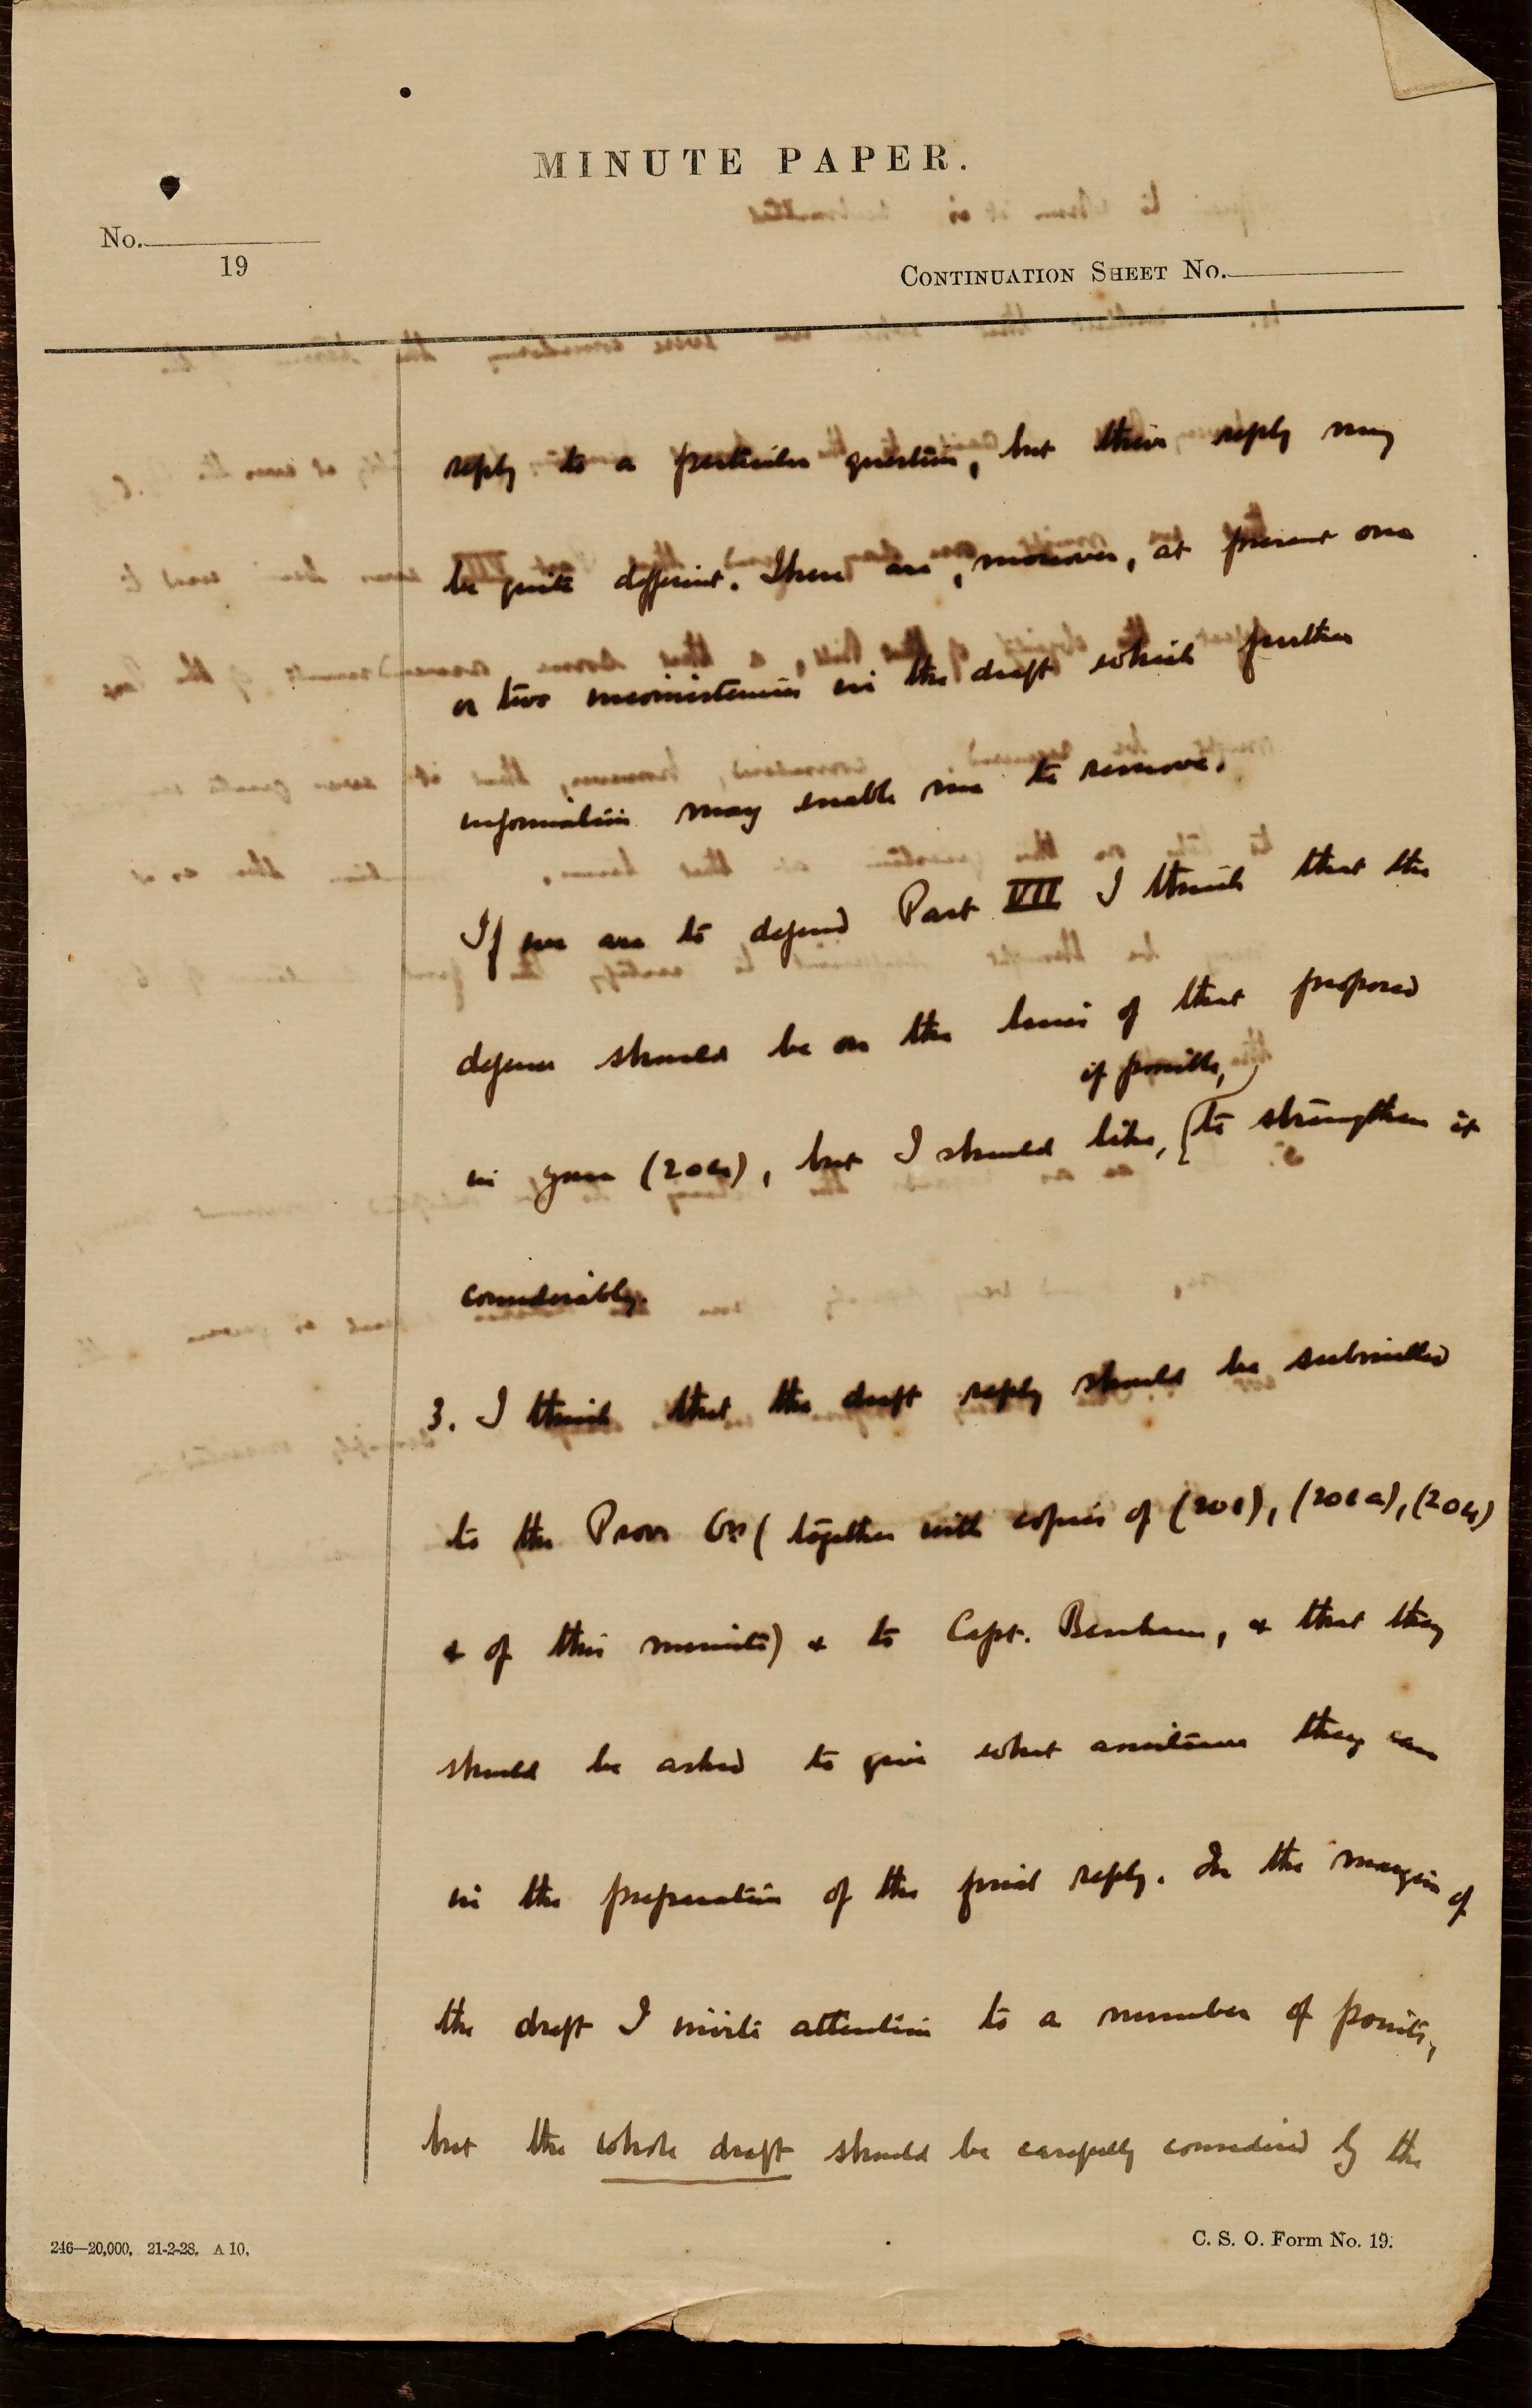 MINUTE PAPER.
No.
19
CONTINUATION SHEET No.
reply to a particular question, but their reply may
be quite different. There are, moreover, at present one
or two inconsistencies in the draft which further
information may enable me to remove.
If we are to defend Part VII I think that the
defence should be on the lines of that proposed
if possible,
in your (204), but I should like, to strengthen it
considerably.
3. I think that the draft reply should be submitted
to the Provr (together with copies of (201), (202a), (204)
& of this minute) & to Capt. , & that they
should be asked to give what assistance they can
in the preparation of the final reply. In the margin of
the draft I invite attention to a number of points,
but the whole draft should be carefully considered by the
246—20,000, 21-2-28. A 10.
C. S. O. Form No. 19.